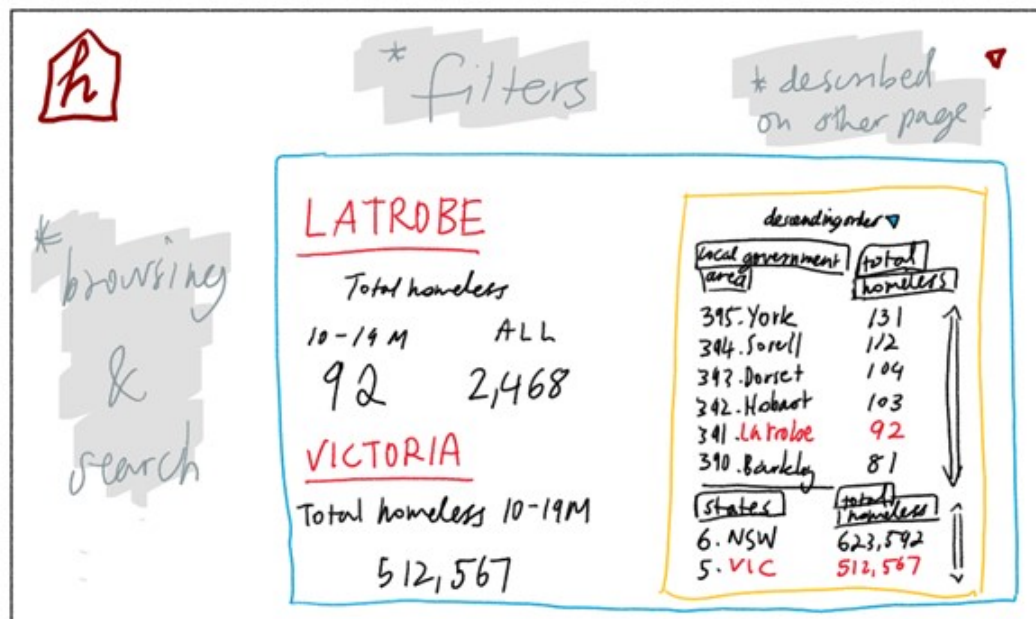 h
* filters
* described
on other page.
* browsing
&
search
LATROBE
Total homeless
10-19 M ALL
92 2,468
VICTORIA
Total homeless 10-19M
512,567
descending order
local government area total homeless
395. York 131
394. Sorell 112
393. Dorset 104
392. Hobart 103
391. Latrobe 92
390. Barkley 81
states total homeless
6. NSW 623,592
5. VIC 512,567